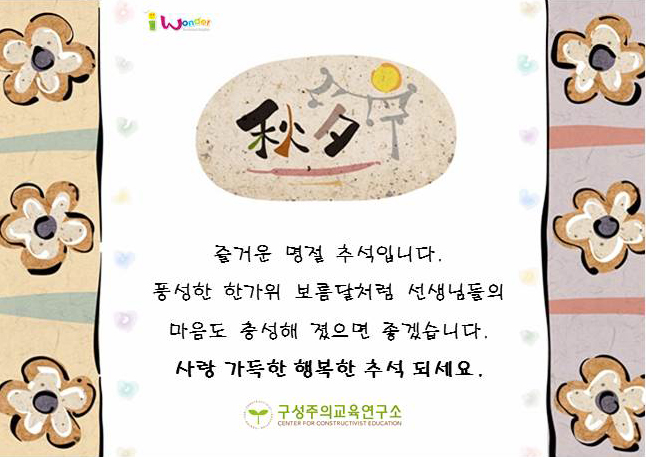 i Wonder
秋夕
즐거운 명절 추석입니다.
풍성한 한가위 보름달처럼 선생님들의
마음도 충성해 졌으면 좋겠습니다.
사랑 가득한 행복한 추석 되세요.
구성주의교육연구소
CENTER FOR CONSTRUCTIVIST EDUCATION